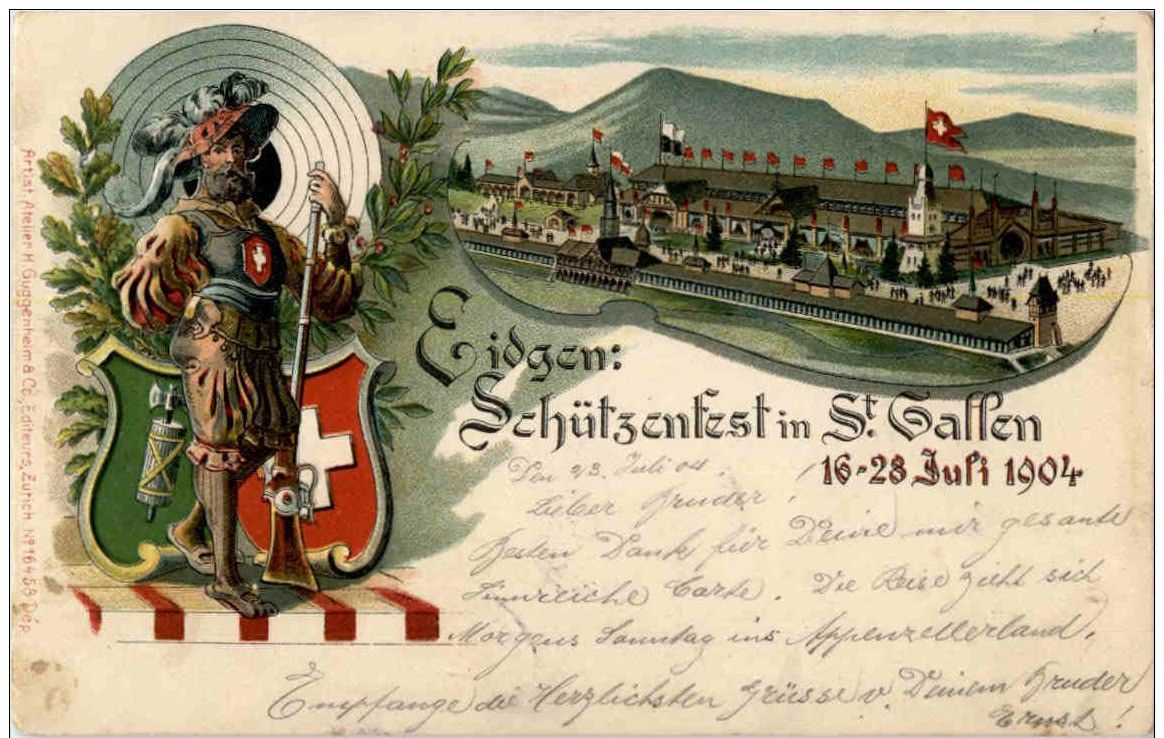 Eidgen:
Schützenfest in St. Gallen
16-28 Juli 1904
Den 23. Juli 04.
Lieber Bruder!
Besten Dank für Deine mir gesante
Sinnreiche Carte. Die Reise zieht sich
Morgens Sonntag ins Appenzellerland.
Empfange die Herzlichsten Grüsse v. Deinem Bruder
Ernst!
Artist. Atelier H. Guggenheim & Co, Editeurs, Zürich No 16458 Dép